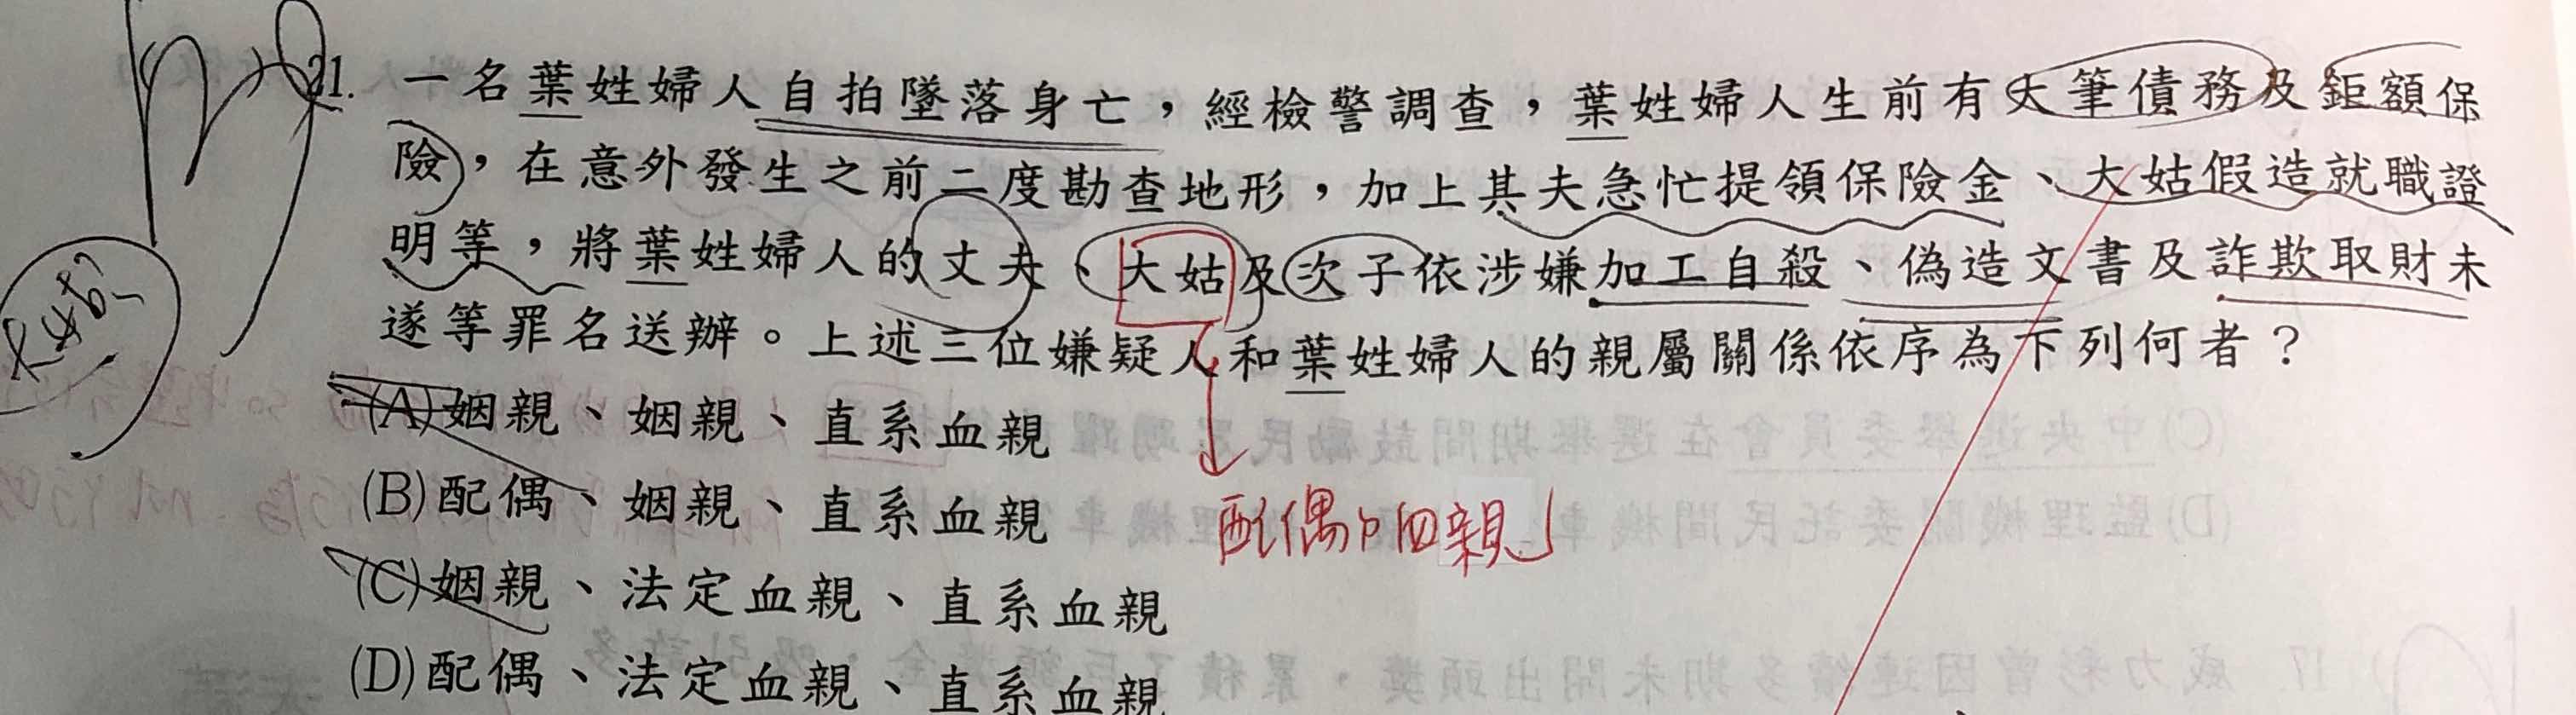 21. 一名葉姓婦人自拍墜落身亡，經檢警調查，葉姓婦人生前有大筆債務及鉅額保
險，在意外發生之前二度勘查地形，加上其夫急忙提領保險金、大姑假造就職證
明等，將葉姓婦人的丈夫、大姑及次子依涉嫌加工自殺、偽造文書及詐欺取財未
遂等罪名送辦。上述三位嫌疑人和葉姓婦人的親屬關係依序為下列何者？
(A)姻親、姻親、直系血親
(B)配偶、姻親、直系血親
配偶的血親
(C)姻親、法定血親、直系血親
(D)配偶、法定血親、直系血親